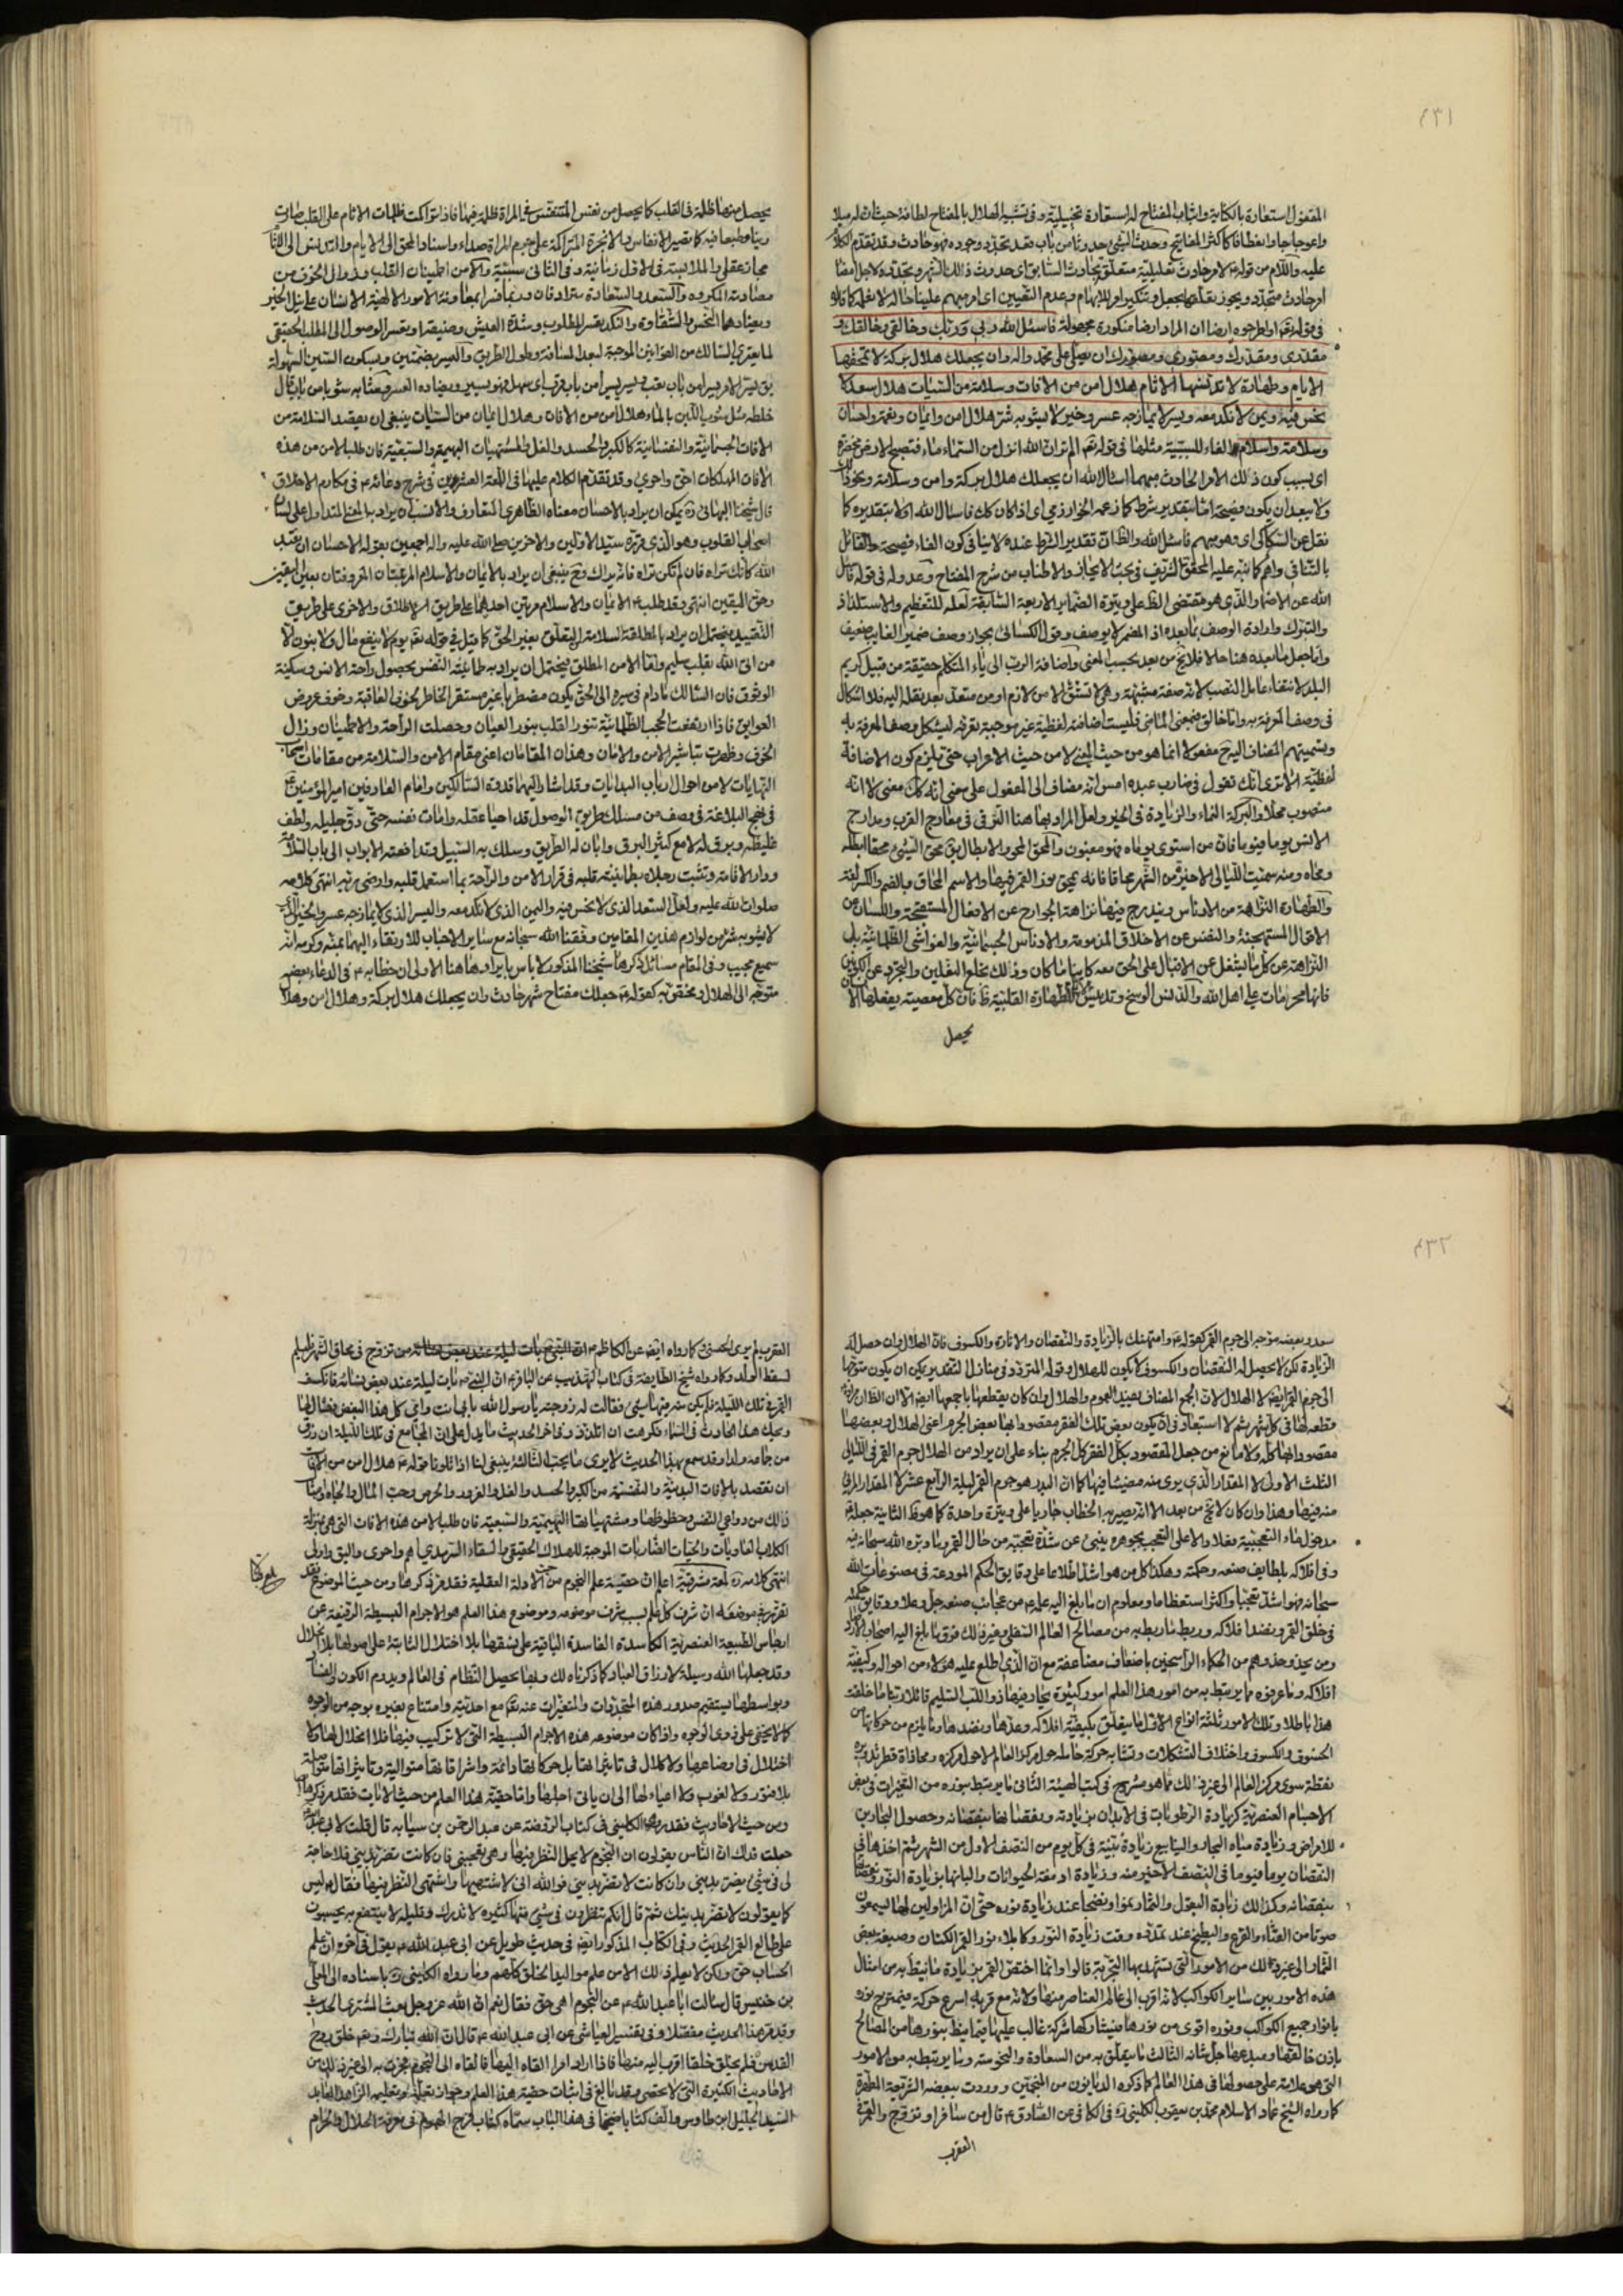 ٤٣١
المتفول استعارة بالكناية واثبات المفتاح له استعارة تخييلية وفى تشبيه الهلال بالمفتاح لطافة حيث ان له ميلا
واعوجاجا وانعطافا كاكثر المفاتيح وحدث الشئ حدوثا من باب قعد تجدد وجوده فهو حادث وقد تقدم الكلام
عليه واللام من قوله لامر حادث تعليلية متعلق بحادث السابق اى حدوث ذلك الشهر وتجدده لاجل امضا
امر حادث متجدد ويجوز تعلقها بجعل وتنكير امر للابهام وعدم التعيين اى امر مبهم علينا حاله لا نعلمه كما قالوا
فى قوله تعم او اطرحوه ارضا ان المراد ارضا منكورة مجهولة فاسئل الله ربى وربك وخالقى وخالقك و
مقدرى ومقدرك ومصورى ومصورك ان يصلى على محمد واله وان يجعلك هلال بركة لا تمحقها
الايام وطهارة لا تدنسها الاثام هلال امن من الافات وسلامة من السيئات هلال سعد لا
نحس فيه ويمن لا نكد معه ويسر لا يمازجه عسر وخير لا يشوبه شر هلال امن وايمان ونعمة واحسان
وسلامة واسلام الفاء للسببية مثلها فى قوله تعم الم تر ان الله انزل من السماء ماء فتصبح الارض مخضرة
اى بسبب كون ذلك الامر الحادث مبهما اسئال الله ان يجعلك هلال بركة وامن وسلامة ونحو ذلك
ولا يبعد ان يكون فصيحة اما بتقدير شرط كما زعمه الخوارزمى اى اذا كان كك فاسال الله او لا بتقديره كما
نقل عن السكاكى اى وهو مبهم فاسئل الله والظ ان تقدير الشرط عنده لا ينافى كون الفاء فصيحة والقائل
بالتنافى واهم كما نبه عليه المحقق الشريف فى بحث الايجاز والاطناب من شرح المفتاح وعدوله فى قوله فاسئل
الله عن الاضمار الذى هو مقتضى الظ على وتيرة الضماير الاربعة السابقة لعله للتعظيم والاستلذاذ
والتبرك وارادة الوصف بما بعده اذ المضمر لا يوصف وقول الكسائى بجواز وصف ضمير الغايب ضعيف
واما جعل ما بعده هنا حالا فلا يخ من بعد بحسب المعنى واضافة الرب الى ياء المتكلم حقيقة من قبيل كريم
البلد لانتفاء عامل النصب لانه صفة مشبهة وهى لا تشتق الا من لازم او من متعد بعد نقله اليه فلا اشكال
فى وصف المعرفة به واما خالق فبمعنى الماضى فليست اضافته لفظية غير موجبة تعرفه ليشكل وصف المعرفة به
وتسميتهم المضاف اليه ح مفعولا انما هو من حيث المعنى لا من حيث الاعراب حتى يلزم كون الاضافة
لفظية الا ترى انك تقول فى ضارب عبده امس انه مضاف الى المفعول على معنى انه كك معنى لا انه
منصوب محلا والبركة النماء والزيادة فى الخير ولعل المراد بها هنا الترقى فى معارج القرب ومدارج
الانس يوما فيوما فان من استوى يوماه فهو مغبون والمحق المحو والابطال يق محق الشئ محقا ابطله
ومحاه ومنه سميت الليالى الاخيرة من الشهر محاقا فانه يمحق نور القمر فيها والاسم المحاق بالضم والكسر لغة
والطهارة النزاهة من الادناس ويندرج فيها نزاهة الجوارح عن الافعال المستقبحة واللسان عن
الاقوال المستهجنة والنفس عن الاخلاق المذمومة والادناس الجسمانية والغواشى الظلمانية بل
النزاهة عن كل ما يشغل عن الاقبال على الحق معه كاينا ما كان وذلك بخلع النعلين والتجرد عن الكونين
فانها محرمات على اهل الله والدنس الوسخ وتدنيس الاثام للطهارة القلبية ظ فان كل معصية يفعلها الا
يحصل
يحصل منها ظلمة فى القلب كما يحصل من نفس المتنفس فى المراة ظلمة فيها فاذا تراكمت ظلمات الاثام على القلب صارت
رينا وطبعا فيه كما تصير الانفاس والابخرة المتراكمة على جرم المراة صداء واسناد المحق الى الايام والدنس الى الاثام
مجاز عقلى والملابسة فى الاول زمانية وفى الثانى سببية والامن اطمينان القلب وزوال الخوف من
مصادفة المكروه والسعد والسعادة مترادفان وربما فسرا بمعاونة الامور الالهية الانسان على نيل الخير
ويضادهما النحس والشقاوة والنكد تعسر المطلوب وشدة العيش وضيقه او تعسر الوصول الى المطلب الحقيقى
لما يعترى السالك من العوايق الموجبة لبعد المسافة وطول الطريق واليسر بضمتين وبسكون السين السهولة
يق يسر الامر يسرا من باب تعب ويسر يسرا من باب قرب اى سهل فهو يسير ويضاده العسر وشابه شوبا من باب قال
خلطه مثل شوب اللبن بالماء هلال امن من الافات وهلال ايمان من السيئات ينبغى ان يقصد السلامة من
الافات الجسمانية والنفسانية كالكبر والحسد والغل والمشتهيات البهيمية والسبعية فان طلب الامن من هذه
الافات المهلكات احق واحرى وقد تقدم الكلام عليها فى اللمعة العشرين فى شرح دعائه ع فى مكارم الاخلاق
قال شيخنا البهائى ره يمكن ان يراد بالاحسان معناه الظاهرى المتعارف والانسب ان يراد به المعنى المتداول على لسان
اصحاب القلوب وهو الذى قرره سيد الاولين والاخرين صلى الله عليه واله اجمعين بقوله الاحسان ان تعبد
الله كانك تراه فان لم تكن تراه فانه يراك وح ينبغى ان يراد بالايمان والاسلام المرتبتان المعروفتان بعين اليقين
وحق اليقين انتهى وقد طلب ع الايمان والاسلام مرتين احدهما على طريق الاطلاق والاخرى على طريق
التقييد فيحتمل ان يراد بالمطلقة السلامة التعلق بغير الحق كما قيل فى قوله تعم يوم لا ينفع مال ولا بنون الا
من اتى الله بقلب سليم واما الامن المطلق فيحتمل ان يراد به طمانينة النفس بحصول راحة الانس وسكينة
الوثوق فان السالك مادام فى سيره الى الحق يكون مضطربا غير مستقر الخاطر لخوف العاقبة وخوف عروض
العوايق فاذا ارتفعت الحجب الظلمانية تنور القلب بنور العيان وحصلت الراحة والاطمينان وزال
الخوف وظهرت تباشير الامن والامان وهذان المقامان اعنى مقام الامن والسلامة من مقامات اصحاب
النهايات لا من احوال ارباب البدايات وقد اشار اليهما قدوة السالكين وامام العارفين امير المؤمنين ع
فى نهج البلاغة فى وصف من مسلك طريق الوصول قد احيا عقله وامات نفسه حتى دق جليله ولطف
غليظه وبرق له لامع كثير البرق وابان له الطريق وسلك به السبيل وتدافعته الابواب الى باب السلامة
ودار الاقامة وتثبت رجلاه بطمانينته قلبه فى قرار الامن والراحة بما استعمل قلبه وارضى ربه انتهى كلامه
صلوات الله عليه ولعل السعد الذى لا نحس فيه واليمن الذى لا نكد معه واليسر الذى لا يمازجه عسر والخير الذى
لا يشوبه شر من لوازم هذين المقامين وفقنا الله سبحانه مع ساير الاحباب للارتقاء اليهما بمنه وكرمه انه
سميع مجيب وفى المقام مسائل ذكرها شيخنا المذكور لا باس بايرادها هنا الاولى ان خطابه ع فى الدعاء بعضه
متوجه الى الهلال ومختص به كقوله ع جعلك مفتاح شهر حادث وان يجعلك هلال بركة وهلال امن وهلال
٤٣٢
سعد وبعضه متوجه الى جرم القمر كقوله ع وامتهنك بالزيادة والنقصان والانارة والكسوف فان الهلال وان حصل له
الزيادة لكن لا يحصل له النقصان والكسوف لا يكون للهلال وقوله المتردد فى منازل التقدير يمكن ان يكون متوجها
الى جرم القمر ايضا لا الهلال لان الجمع المضاف يفيد العموم والهلال وان كان يقطعها باجمعها ايضا الا ان الظ ان مراده
قطعه لها فى كل شهر ثم لا استبعاد فى ان يكون بعض تلك الفقر مقصودا بها بعض الجرم اعنى الهلال وبعضها
مقصودا بها كله ولا مانع من جعل المقصود بكل الفقر كل الجرم بناء على ان يراد من الهلال جرم القمر فى الليالى
الثلث الاول لا المقدار الذى يرى منه مضيئا فيها كما ان البدر هو جرم القمر ليلة الرابع عشر لا المقدار المرئى
منه فيها وهذا وان كان لا يخ من بعد الا انه يصير به الخطاب جاريا على وتيرة واحدة كما هو ظ الثانية جعله ع
مدخول ما التعجبية فعلا دالا على التعجب بجوهره ينبئ عن شدة تعجبه من حال القمر وما دبره الله سبحانه فيه
وفى افلاكه بلطايف صنعه وحكمته وهكذا كل من هو اشد اطلاعا على دقايق الحكم المودعة فى مصنوعات الله
سبحانه فهو اشد تعجبا واكثر استعظاما ومعلوم ان ما بلغ اليه علمه ع من عجائب صنعه جل وعلا ودقايق حكمته
فى خلق القمر ونضد افلاكه وربط ما ربطه به من مصالح العالم السفلى وغير ذلك فوق ما بلغ اليه اصحاب الارصاد
ومن يحذو حذوهم من الحكماء الراسخين باضعاف مضاعفة مع ان الذى اطلع عليه هؤلاء من احواله وكيفية
افلاكه وما عرفوه مما يرتبط به من امور هذا العالم امور كثيرة يحار فيها ذو اللب السليم قائلا ربنا ما خلقت
هذا باطلا وتلك الامور ثلثة انواع الاول ما يتعلق بكيفية افلاكه وعدها ونضدها وما يلزم من حركاتها من
الخسوف والكسوف واختلاف التشكلات وتشابه حركة حامله حول مركز العالم لا حول مركزه ومحاذاة قطر تدويره
نقطة سوى مركز العالم الى غير ذلك مما هو مشروح فى كتب الهيئة الثانى ما يرتبط بنوره من التغيرات فى بعض
الاجسام العنصرية كزيادة الرطوبات فى الابدان بزيادته ونقصانها بنقصانه وحصول البحارين
للامراض وزيادة مياه البحار والينابيع زيادة بينة فى كل يوم من النصف الاول من الشهر ثم اخذها فى
النقصان يوما فيوما فى النصف الاخير منه وزيادة ادمغة الحيوانات والبانها بزيادة النور ونقصانها
بنقصانه وكذلك زيادة البقول والثمار نموا ونضجا عند زيادة نوره حتى ان المزاولين لها يسمعون
صوتا من القثاء والقرع والبطيخ عند تمدده وقت زيادة النور وكابلاء نور القمر الكتان وصبغه بعض
الثمار الى غير ذلك من الامور التى تشهد بها التجربة قالوا وانما اختص القمر بزيادة ما نيط به من امثال
هذه الامور بين ساير الكواكب لانه اقرب الى عالم العناصر منها ولانه مع قربه اسرع حركة فيمتزج نوره
بانوار جميع الكواكب ونوره اقوى من نورها فيشاركها شركة غالب عليها فيما نيط بنورها من المصالح
باذن خالقها ومبدعها جل شانه الثالث ما يتعلق به من السعادة والنحوسة وما يرتبط به من الامور
التى هو علامة على حصولها فى هذا العالم كما ذكره الديانون من المنجمين ووردت ببعضه الشريعة المطهرة
كما رواه الشيخ عماد الاسلام محمد بن يعقوب الكلينى ره فى الكافى عن الصادق ع قال من سافر او تزوج والقمر فى
العقرب
العقرب لم يرى الحسنى وكما رواه ايضا عن الكاظم ع من تزوج فى محاق الشهر فليسلم
لسقط الولد وكما رواه شيخ الطايفة فى كتاب التهذيب عن الباقر ع ان النبى ص بات ليلة عند بعض نسائه فانكسف
القمر فى تلك الليلة فلم يكن منه فيها شئ فقالت له زوجته يا رسول الله بابى انت وامى كل هذا البغض فقال لها
ويحك هذا الحادث فى السماء فكرهت ان اتلذذ وفى اخر الحديث ما يدل على ان المجامع فى تلك الليلة ان رزق
من جماعه ولدا وقد سمع بهذا الحديث لا يرى ما يحب الثالثة ينبغى لنا اذا تلونا قوله ع هلال امن من الافات
ان نقصد بالافات البدنية والنفسية من الكبر والحسد والغل والغرور والحرص وحب المال والجاه وغير
ذلك من دواعى النفس وحظوظها ومشتهياتها البهيمية والسبعية فان طلب الامن من هذه الافات التى هى بمنزلة
الكلاب العاويات والحيات الضاريات الموجبة للهلاك الحقيقى والشقاء السرمدى اهم واحرى واليق واولى
انتهى كلامه ره لمعة مشرقية اعلم ان حقية علم النجوم من الادلة العقلية فقد مر ذكرها ومن حيث الموضوع فقد
تقرر فى موضعه ان شرف كل علم بسبب شرف موضوعه وموضوع هذا العلم هو الاجرام البسيطة الرفيعة عن
ارجاس الطبيعة العنصرية الكاسدة الفاسدة الباقية على نسقها بلا اختلال الثابتة على صولتها بلا انحلال
وقد جعلها الله وسيلة لارزاق العباد كما ذكرناه لك وبها يحصل النظام فى العالم ويدوم الكون والفساد
وبواسطها يستقيم صدور هذه المتجددات والمتغيرات عنه تعم مع احديته وامتناع تغييره بوجه من الوجوه
كما لا يخفى على ذوى الوجوه واذا كان موضوعه هذه الاجرام البسيطة التى لا تركيب فيها فلا انحلال لها ولا
اختلال فى اوضاعها ولا كلال فى تاثيراتها بل حركاتها دائمة واشراقاتها متوالية وتاثيراتها متواصلة
بلا فتور ولا لغوب ولا اعياء لها الى ان ياتى اجلها واما حقية هذا العلم من حيث الايات فقد مر ذكرها
ومن حيث الاحاديث فقد روى الكلينى فى كتاب الروضة عن عبد الرحمن بن سيابة قال قلت لابى عبد الله
جعلت فداك ان الناس يقولون ان النجوم لا يحل النظر فيها وهى تعجبنى فان كانت تضر بدينى فلا حاجة
لى فى شئ يضر بدينى وان كانت لا تضر بدينى فوالله انى لاشتهيها واشتهى النظر فيها فقال ليس
كما يقولون لا تضر بدينك ثم قال انكم تنظرون فى شئ منها كثيره لا يدرك وقليله لا ينتفع به تحسبون
على طالع القمر الحديث وفى الكتاب المذكور ايضا فى حديث طويل عن ابى عبد الله ع يقول فى اخره ان علم
الحساب حق ولكن لا يعلم ذلك الا من علم مواليد الخلق كلهم وما رواه الكلينى ره باسناده الى المعلى
بن خنيس قال سالت ابا عبد الله ع عن النجوم اهى حق فقال نعم ان الله عز وجل بعث المشترى الحديث
وقد مر هذا الحديث مفصلا وفى تفسير العياشى عن ابى عبد الله ع قال ان الله تبارك وتعم خلق روح
القدس فلم يخلق خلقا اقرب اليه منها فاذا اراد امرا القاه اليها فالقاه الى النجوم فجرت به الى غير ذلك من
الاحاديث الكثيرة التى لا تحصى وقد بالغ فى اثبات حقية هذا العلم وجواز تعلمه وتعليمه الزاهد العابد
السيد الجليل ابن طاوس والف كتابا ضخما فى هذا الباب سماه كتاب فرج المهموم فى معرفة الحلال والحرام